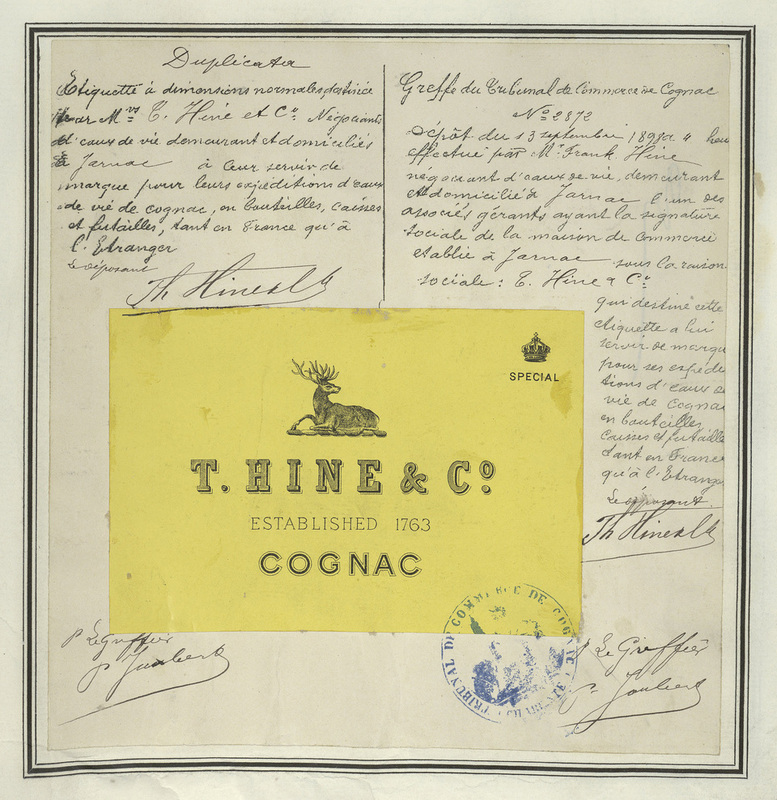 Duplicata
Etiquette à dimensions normales, destinée
par Mrs T. Hine et Co Négociants
d'eaux de vie demeurant et domiciliés
à Jarnac à leur servir de
marque pour leurs expéditions d'eaux
de vie de cognac, en bouteilles, caisses
et futailles, tant en France qu'à
l'Etranger
Le déposant
Th Hine & Co
Greffe du Tribunal de Commerce de Cognac
No 2872
Dépôt du 13 septembre à heu
effectué par Mr Frank Hine
négociant d'eaux de vie, demeurant
et domicilié à Jarnac l'un des
associés gérants ayant la signature
sociale de la maison de commerce
etablie à Jarnac sous la raison
sociale : T. Hine & Co
qui destine cette
etiquette a lui
servir de marque
pour ses expédi
tions d'eaux de
vie de cognac
en bouteilles
caisses et futailles
tant en France
qu'à l'Etranger
Le déposant
Th Hine & Co
SPECIAL
T. HINE & Co
ESTABLISHED 1763
COGNAC
TRIBUNAL DE COMMERCE DE COGNAC (CHARENTE)
P Le Greffier
P Joubert
P Le Greffier
P Joubert